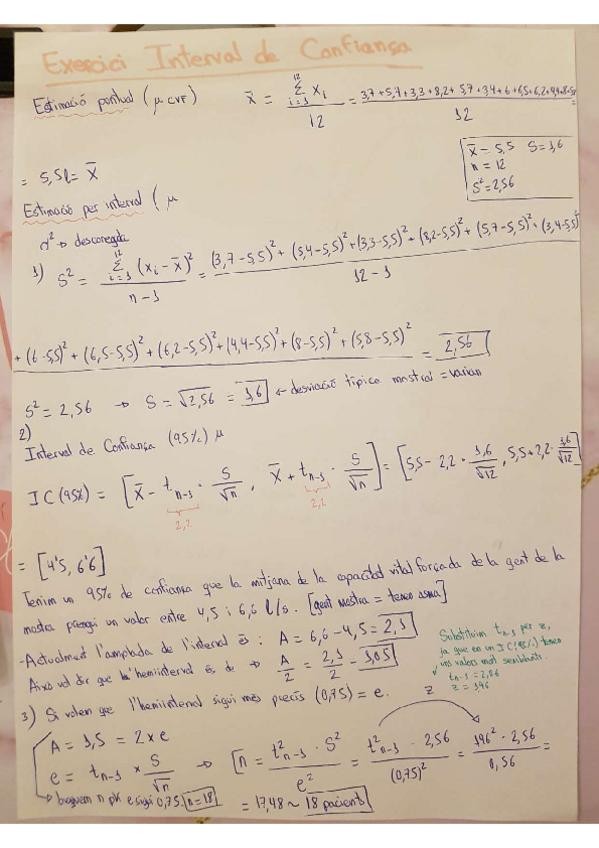 Exercici Interval de Confiança
Estimació puntual (μ CVF) x̄ = Σ¹²ᵢ₌₁ xᵢ / 12 = 3,7+5,4+3,3+8,2+5,7+3,4+6+6,5+6,2+4,4+8+5,8 / 12 =
= 5,5 l = x̄
x̄ = 5,5 S = 1,6
n = 12
S² = 2,56
Estimació per interval (μ
σ² → desconeguda
1) S² = Σ¹²ᵢ₌₁ (xᵢ - x̄)² / n-1 = (3,7-5,5)² + (5,4-5,5)² + (3,3-5,5)² + (8,2-5,5)² + (5,7-5,5)² + (3,4-5,5)² / 12-1
+ (6-5,5)² + (6,5-5,5)² + (6,2-5,5)² + (4,4-5,5)² + (8-5,5)² + (5,8-5,5)² = 2,56
S² = 2,56 → S = √2,56 = 1,6 ← desviació típica mostral = varian
2)
Interval de Confiança (95%) μ
IC (95%) = [x̄ - tₙ₋₁ · S/√n , x̄ + tₙ₋₁ · S/√n] = [5,5 - 2,2 · 1,6/√12 , 5,5 + 2,2 · 1,6/√12]
2,2 2,2
= [4'5, 6'6]
Tenim un 95% de confiança que la mitjana de la capacitat vital forçada de la gent de la
mostra prengui un valor entre 4,5 i 6,6 l/s. [gent mostra = tenen asma]
- Actualment l'amplada de l'interval és: A = 6,6 - 4,5 = 2,1
Això vol dir que l'hemiinterval és de → A/2 = 2,1/2 = 1,05
Substituim tₙ₋₁ per z,
ja que en un IC (95%) tenen
uns valors molt semblants.
tₙ₋₁ = 2,06
z = 1,96
3) Si volem que l'hemiinterval sigui més precís (0,75) = e.
z
A = 1,5 = 2 × e
e = tₙ₋₁ × S/√n → [n = t²ₙ₋₁ · S² / e² = t²ₙ₋₁ · 2,56 / (0,75)² = 1,96² · 2,56 / 0,56 =
busquem n pk e sigui 0,75. n = 18
= 17,48 ~ 18 pacients